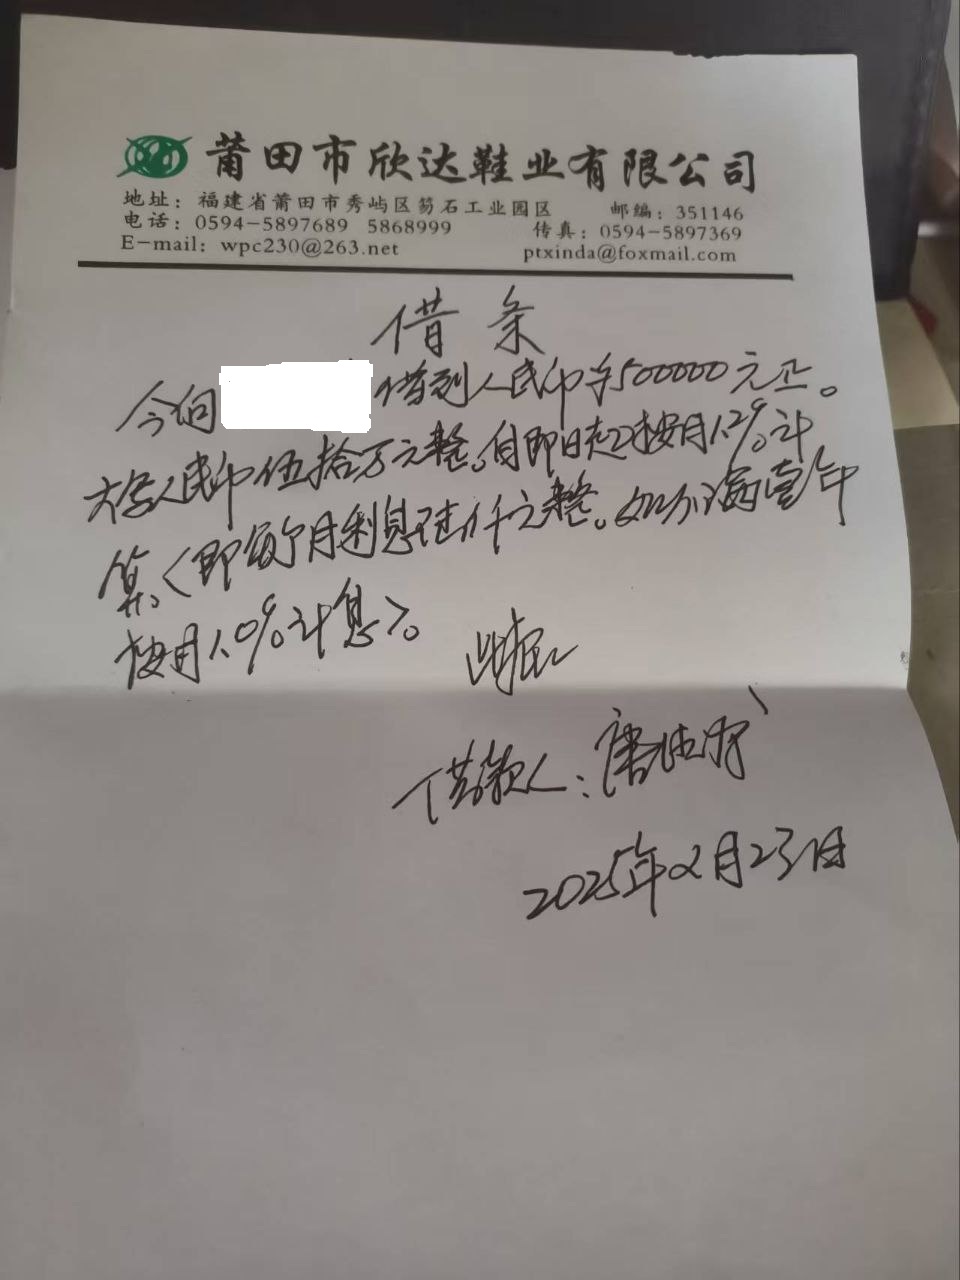 莆田市欣达鞋业有限公司
地址：福建省莆田市秀屿区笏石工业园区 邮编：351146
电话：0594-5897689 5868999 传真：0594-5897369
E-mail：wpc230@263.net ptxinda@foxmail.com
借条
今向 借到人民币¥500000元正。
大写人民币伍拾万元整。自即日起按月1.2%计
算。<即每个月利息陆仟元整。如不满壹年
按月1.0%计息>。
此据
借款人：唐
2025年2月23日